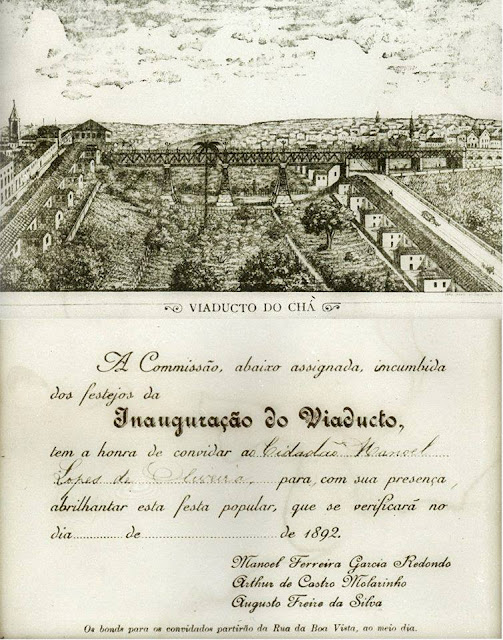 VIADUCTO DO CHÁ
A Commissão, abaixo assignada, incumbida
dos festejos da
Inauguração do Viaducto,
tem a honra de convidar ao Cidadão Manoel
Lopes de Oliveira, para, com sua presença,
abrilhantar esta festa popular, que se verificará no
dia.................... de .................................. de 1892.
Manoel Ferreira Garcia Redondo
Arthur de Castro Molarinho
Augusto Freire da Silva
Os bonds para os convidados partirão da Rua da Boa Vista, ao meio dia.